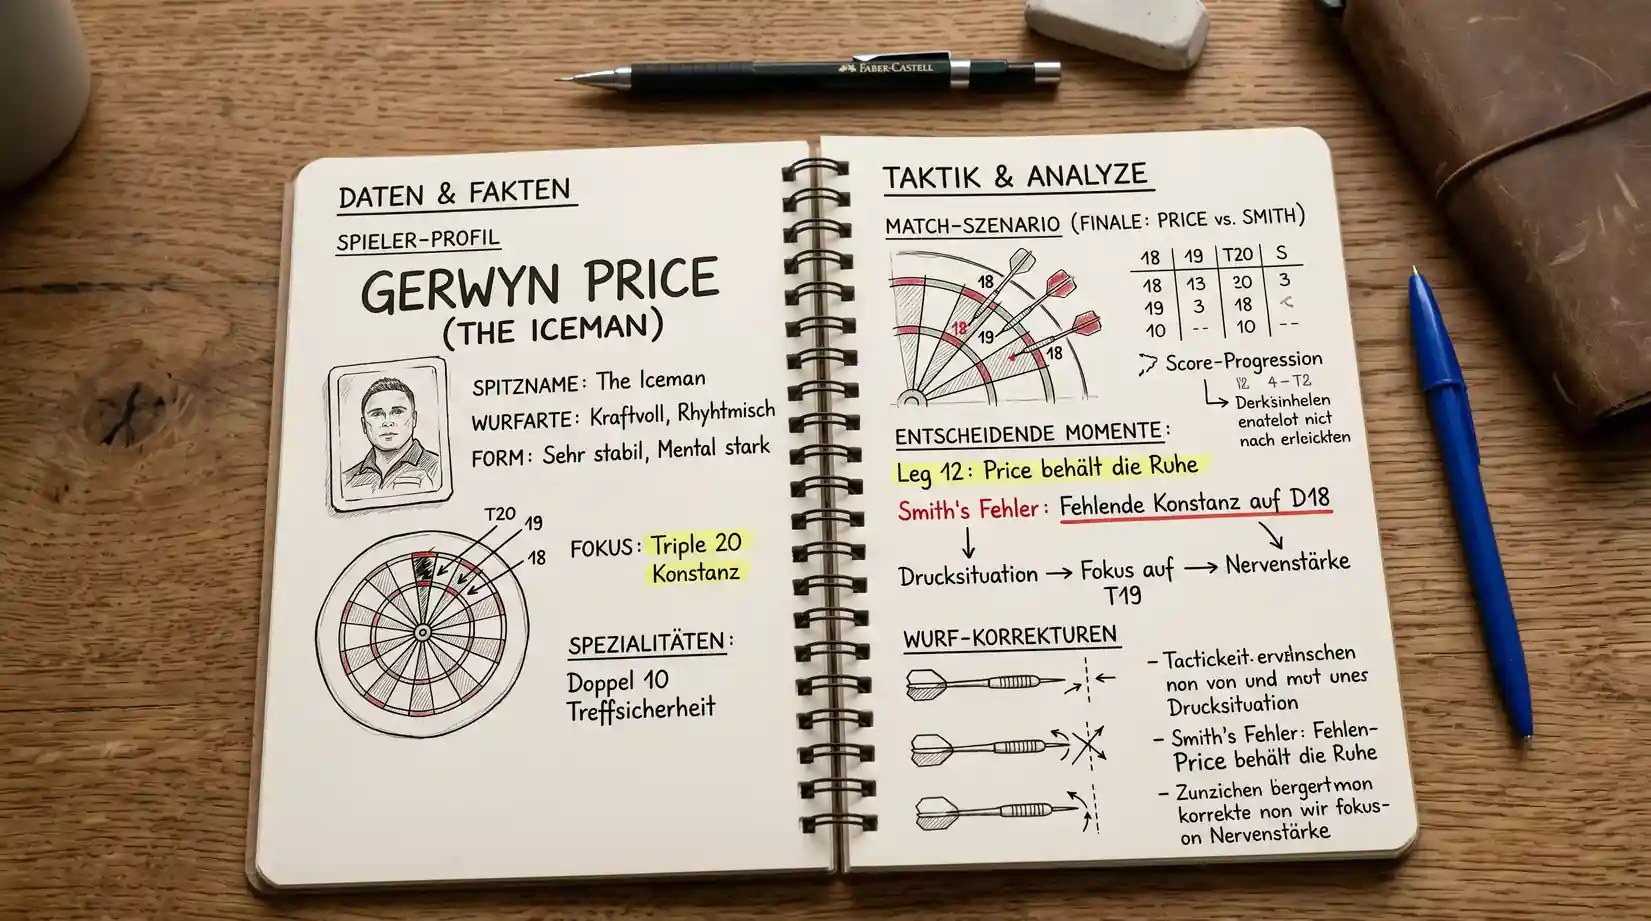 FABER-CASTELL
DATEN & FAKTEN
SPIELER-PROFIL
GERWYN PRICE
(THE ICEMAN)
SPITZNAME: The Iceman
WURFARTE: Kraftvoll, Rhyhtmisch
FORM: Sehr stabil, Mental stark
T20
19
18
FOKUS: Triple 20
Konstanz
SPEZIALITÄTEN:
Doppel 10
Treffsicherheit
TAKTIK & ANALYZE
MATCH-SZENARIO (FINALE: PRICE vs. SMITH)
18
18
19
18
18 19 T20 S
18 13 20 3
19 3 18
10 -- 10 --
Score-Progression
12 4-T2
Derksinhelen
enatelot nict
nach erleickten
ENTSCHEIDENDE MOMENTE:
Leg 12: Price behält die Ruhe
Smith's Fehler: Fehlende Konstanz auf D18
Drucksituation → Fokus auf → Nervenstärke
T19
WURF-KORREKTUREN
- Tactickeit
non von und mut unes
Drucksituation
- Smith's Fehler: Fehlen-
Price behält die Ruhe
- Zunzichen bergertmon
korrekte non wir fokus-
on Nervenstärke